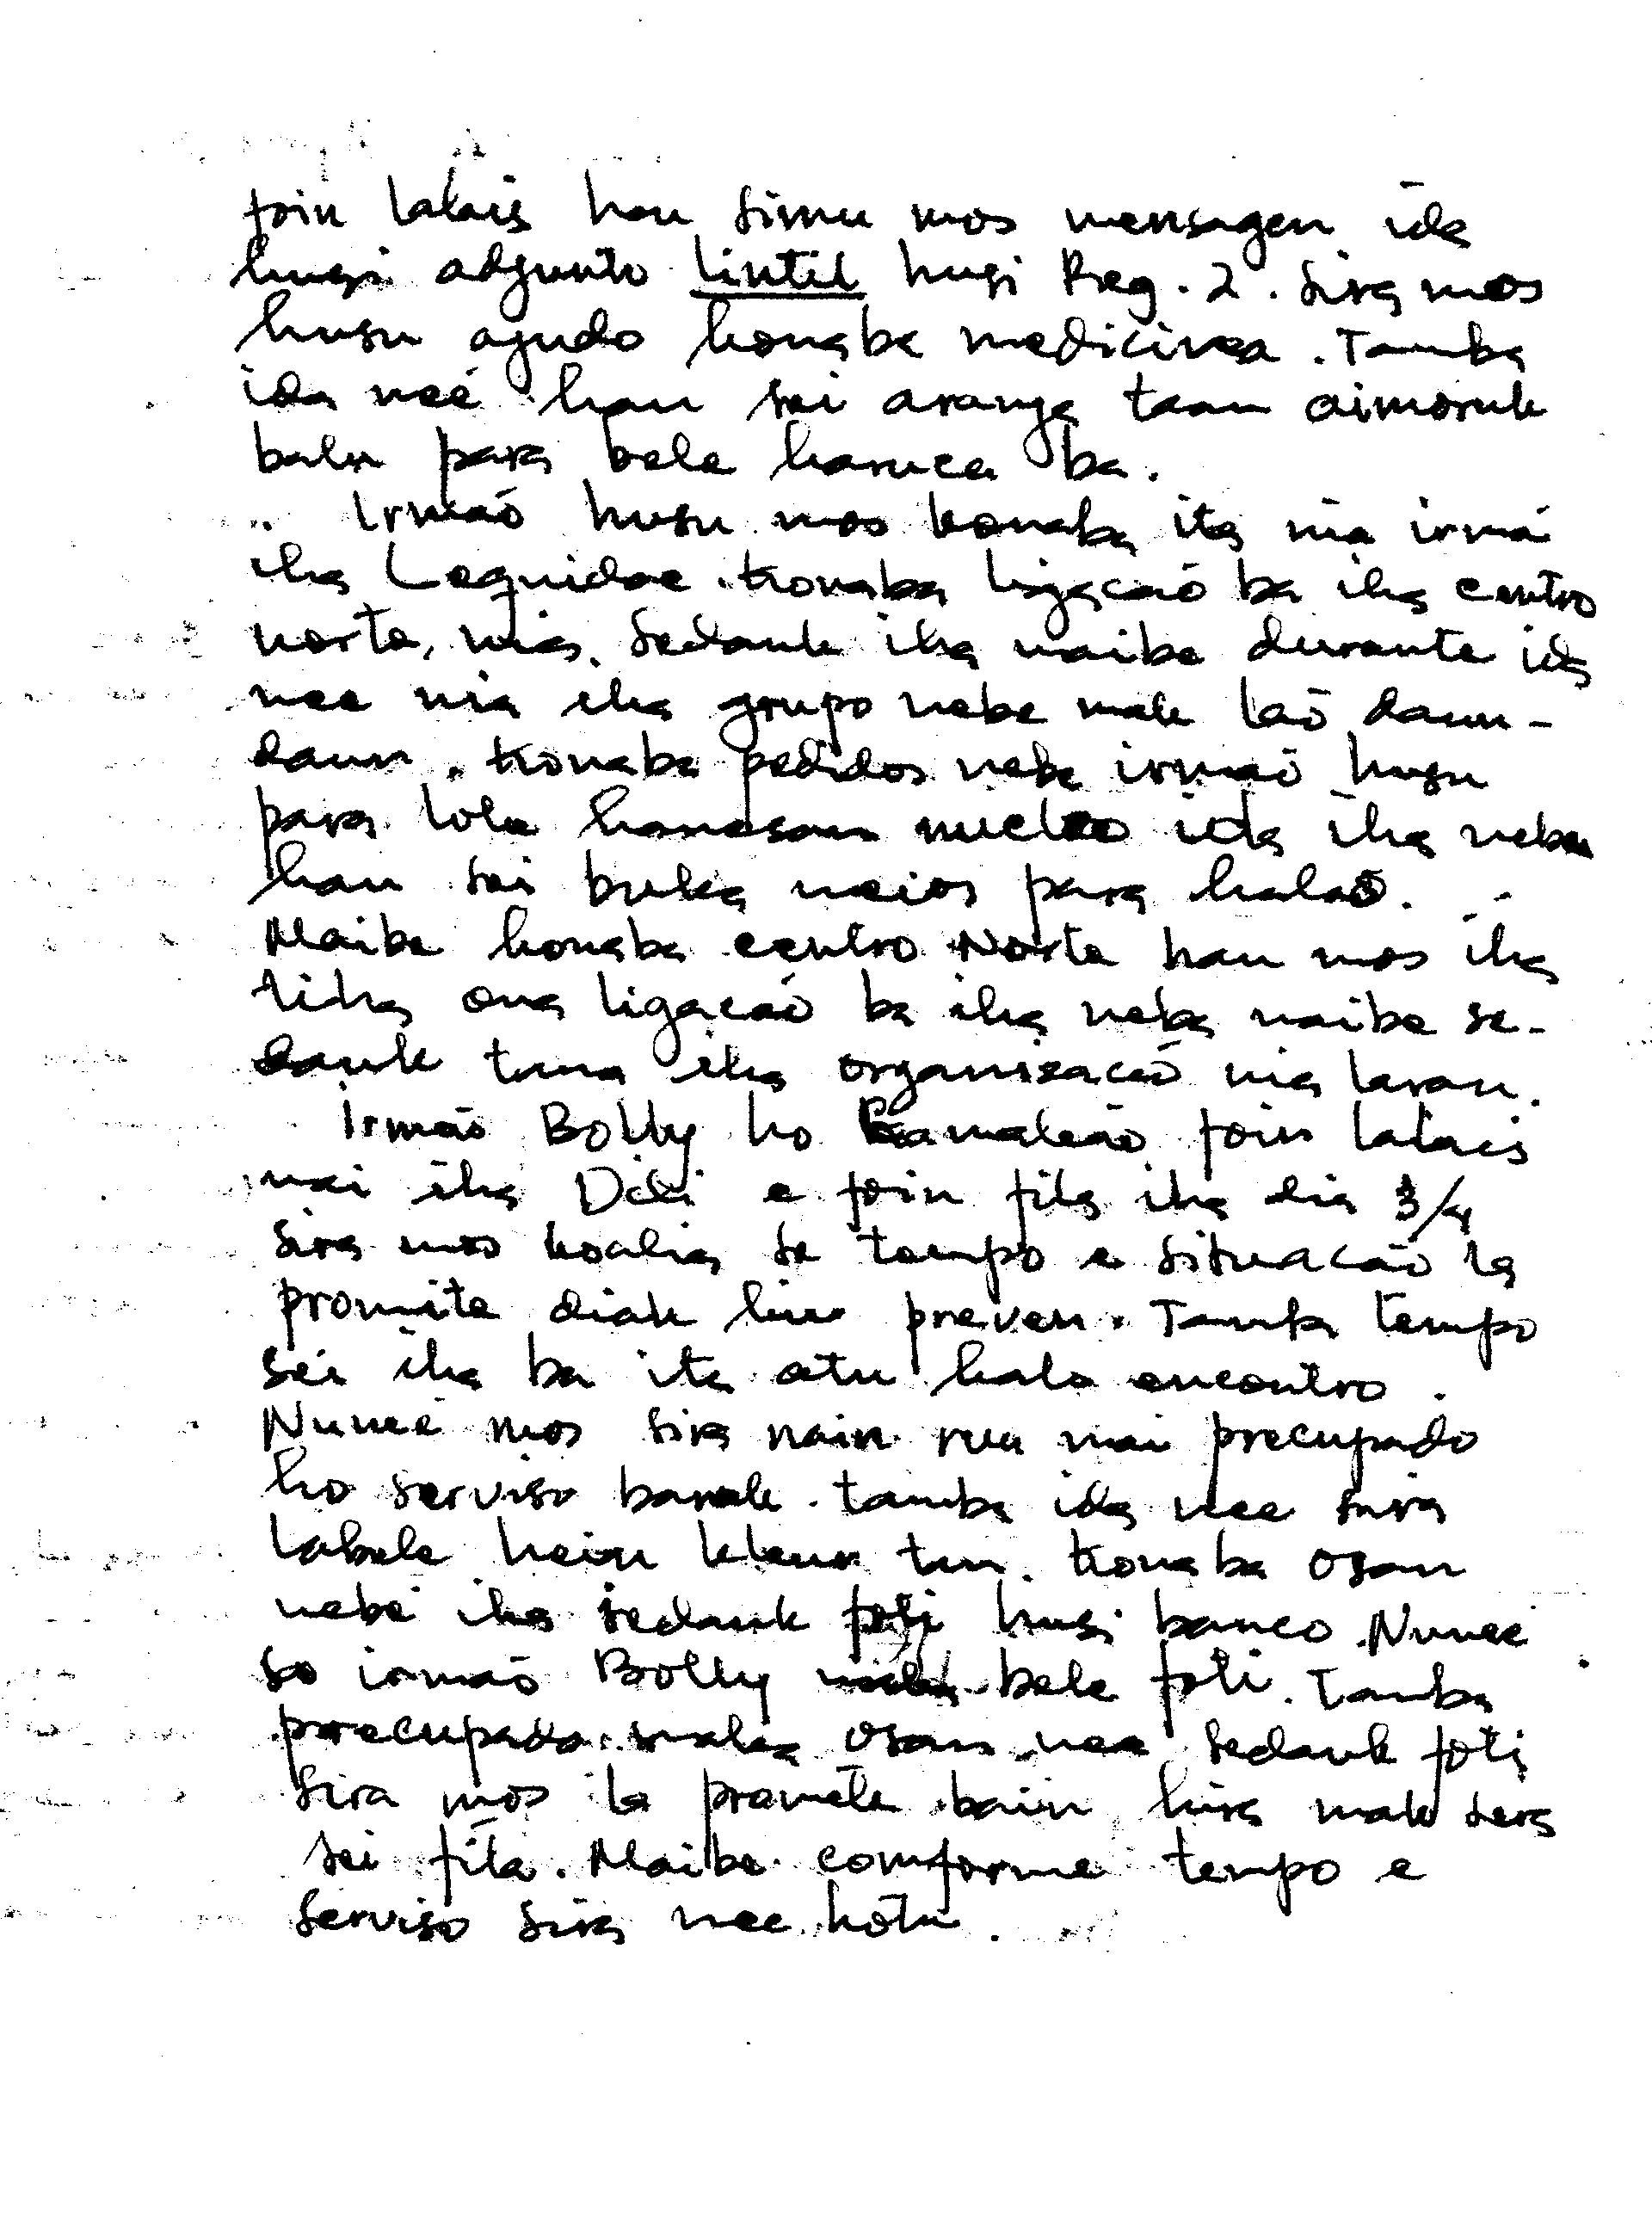 foin lalais hau simu mos mensagen ida
husi adjunto Lintil husi Reg. 2. Sira mos
husu ajudo konaba medicinea. Tamba
ida neé hau sei aranja taan aimoruk
balu para bele haruca ba.
Irmaõ husu mos konaba ita nia irmá
iha Leguidoe. Konaba ligacaõ ba iha centro
norte, nia. Sedauk iha maibe durante ida
nee nia iha grupo nebe mak laõ daun-
daun. Konaba pedidos nebe irmaõ husu
para lole hanesan nucleo ida iha neba
hau sei buka meios para halaõ.
Maibe konaba centro Norte hau mos iha
tiha ona ligacaõ ba iha neba maibe se-
dauk tama iha organisacaõ nia laran.
Irmaõ Bolly ho Kamaleaõ foin lalais
mai iha Dili e foin fila iha dia 3/4
sira mos koalia se tempo e situacão la
promite diak liu preven. Tamba tempo
sei iha ba ita atu halo encontro.
Nuneé mos sira nain rua mai precupado
ho serviso barak. tamba ida nee sira
labele hein kleur tan. Konaba osan
nebé iha sedauk foti husi banco. Nuneé
so irmaõ Bolly bele foti. Tamba
precupado malea osan nee sedauk foti
sira mos la pramete bain hira mak sera
sei fila. Maibe comforme tempo e
serviso sira nee hotu.